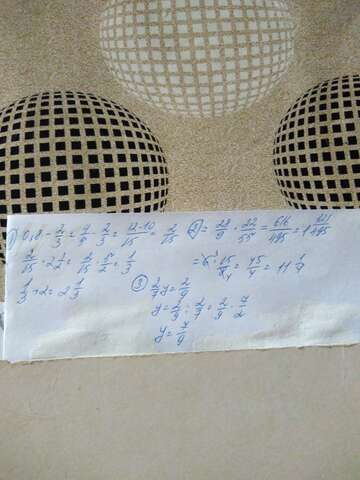 1) 0,8 - 2/3 = 4/5 - 2/3 = 12-10/15 = 2/15
2) = 28/9 · 22/55 = 616/495 = 1 121/495
2/15 · 2 1/2 = 2/15 · 5/2 = 1/3
= 45/4 = 11 1/4
1/3 + 2 = 2 1/3
3) 2/7 y = 2/9
y = 2/9 : 2/7 = 2/9 · 7/2
y = 7/9